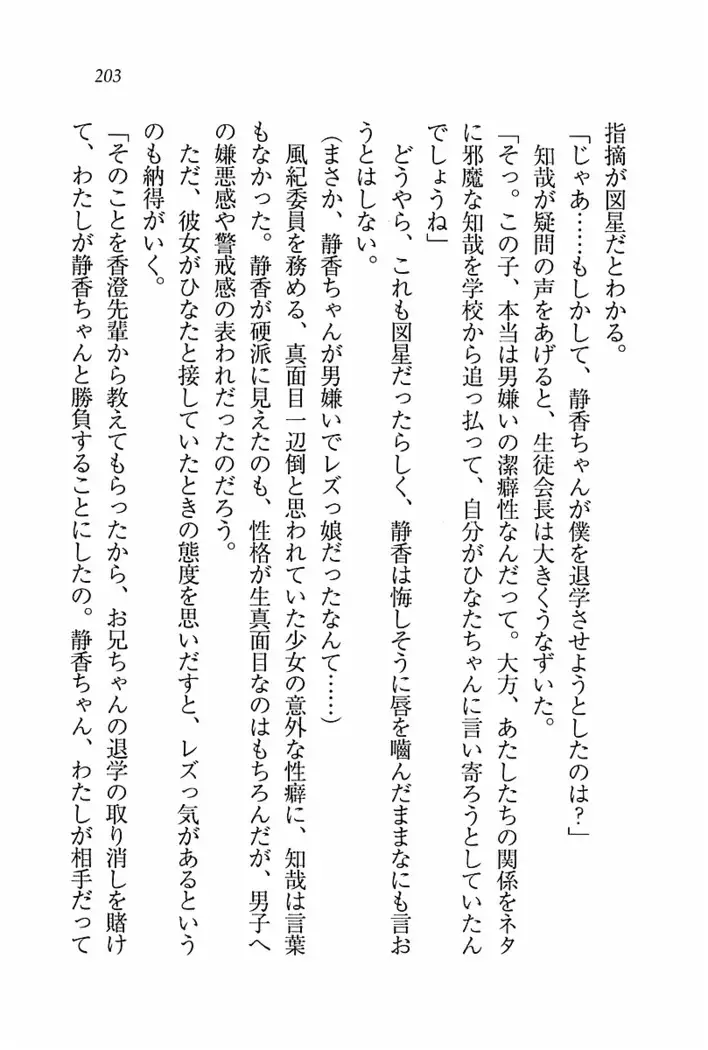 203
指摘が図星だとわかる。
「じゃあ……もしかして、静香ちゃんが僕を退学させようとしたのは？」
知哉が疑問の声をあげると、生徒会長は大きくうなずいた。
「そっ。この子、本当は男嫌いの潔癖性なんだって。大方、あたしたちの関係をネタ
に邪魔な知哉を学校から追っ払って、自分がひなたちゃんに言い寄ろうとしていたん
でしょうね」
どうやら、これも図星だったらしく、静香は悔しそうに唇を嚙んだままなにも言お
うとはしない。
（まさか、静香ちゃんが男嫌いでレズっ娘だったなんて……）
風紀委員を務める、真面目一辺倒と思われていた少女の意外な性癖に、知哉は言葉
もなかった。静香が硬派に見えたのも、性格が生真面目なのはもちろんだが、男子へ
の嫌悪感や警戒感の表われだったのだろう。
ただ、彼女がひなたと接していたときの態度を思いだすと、レズっ気があるという
のも納得がいく。
「そのことを香澄先輩から教えてもらったから、お兄ちゃんの退学の取り消しを賭け
て、わたしが静香ちゃんと勝負することにしたの。静香ちゃん、わたしが相手だって